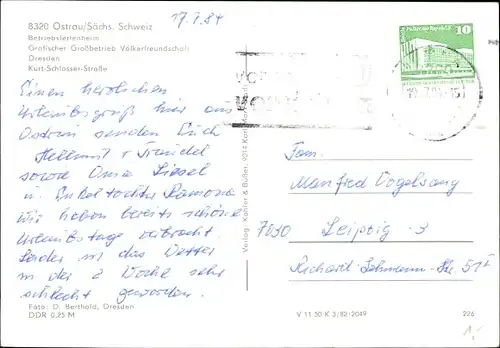 8320 Ostrau/Sächs. Schweiz
Betriebsferienheim
Grafischer Großbetrieb Völkerfreundschaft
Dresden
Kurt-Schlosser-Straße
17.7.84
10
Einen herzlichen
Urlaubsgruß hier aus
Ostrau senden Euch
Hellmut + Traudel
sowie Oma Liesel
u. Enkeltochter Ramona
Wir haben bereits schöne
Urlaubstage verbracht.
Leider ist das Wetter
in der 2 Woche sehr
schlecht geworden.
Foto: D. Berthold, Dresden
DDR 0,25 M
Verlag: Köhler & Büller, 9014 Karl-Marx-Stadt
Fam.
Manfred Vogelsang
7030 Leipzig - 3
Richard-Lehmann-Str. 51
V 11 50 K 3/82-2049
226
1,-